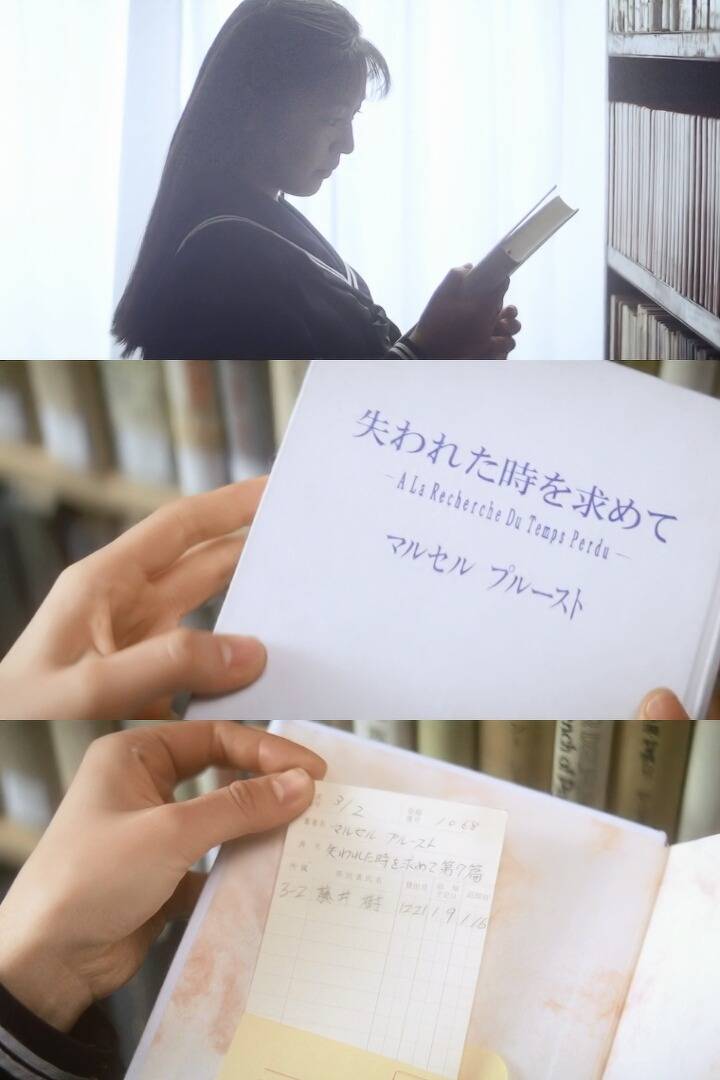 失われた時を求めて
—A La Recherche Du Temps Perdu—
マルセル プルースト
3/2
10.68
マルセル プルースト
失われた時を求めて第7篇
3-2 藤井 樹 12.21 1.9 1.16